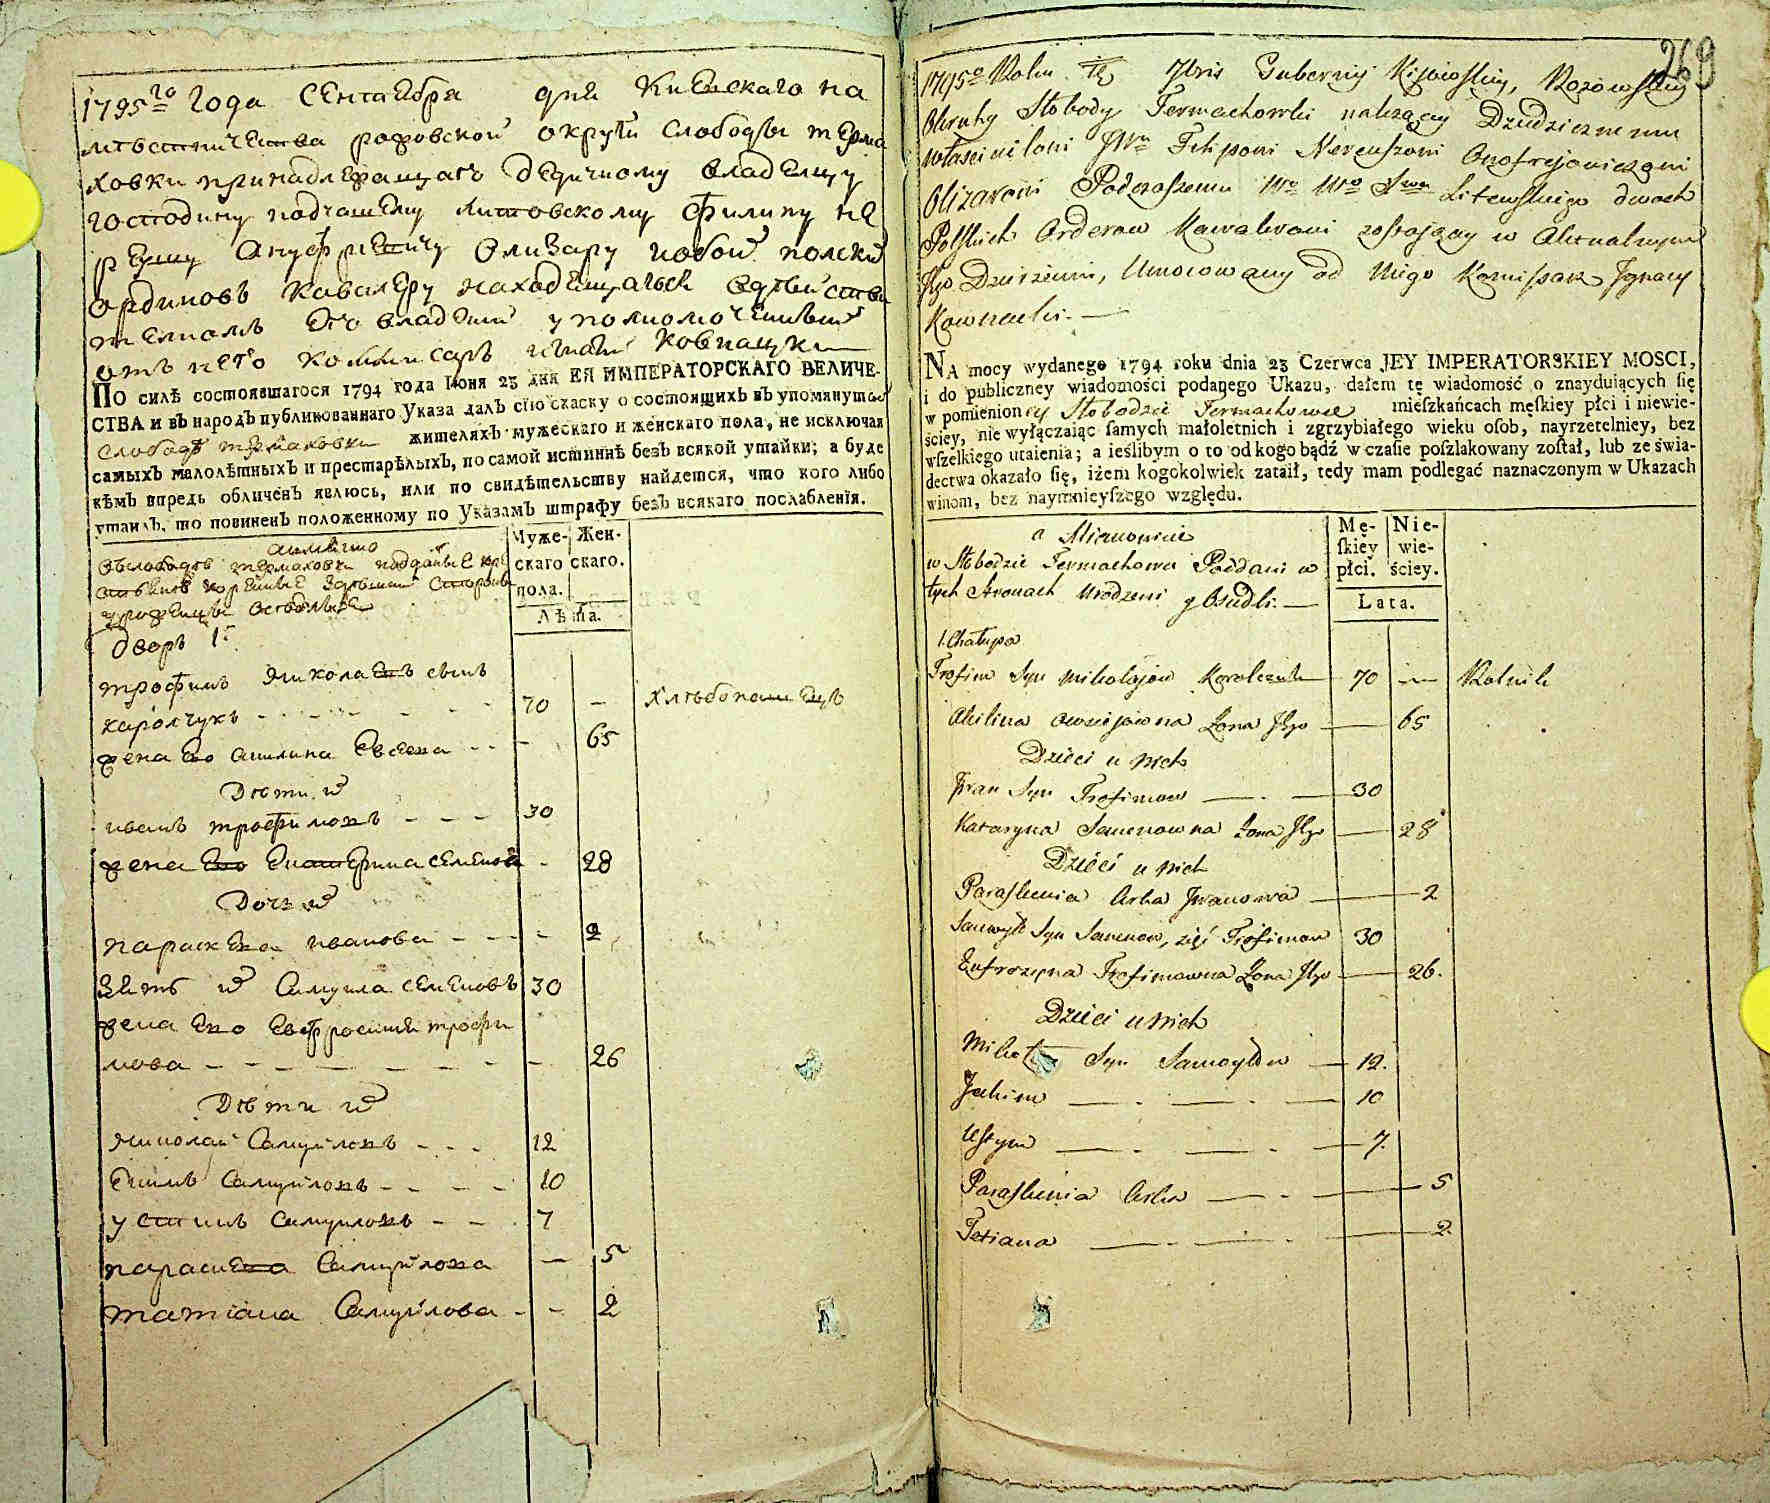 1795го Года Сентября дня Киевскаго на
местничества рафовской округи Слободы терма
ховки принадлежащаго дедичному владелцу
господину подчашему литовскому Филипу не
реушу Ануфриевичу Олизару обои полски
ординовъ кавалеру находящагося въдействи
телномъ его владении уполномоченный
отъ него коммисаръ игнати Ковнацки
ПО силѣ состоявшагося 1794 года Іюня 23 дня ЕЯ ИМПЕРАТОРСКАГО ВЕЛИЧЕ-
СТВА и въ народъ публикованнаго Указа далъ сїю скаску о состоящихъ въ упомянутой
слободе термаховки жителяхъ мужескаго и женскаго пола, не исключая
самыхъ малолѣтныхъ и престарѣлыхъ, по самой истиннѣ безъ всякой утайки; а буде
кѣмъ впредь обличенъ явлюсь, или по свидѣтельству найдется, что кого либо
утаилъ, то повиненъ положенному по Указамъ штрафу безъ всякаго послабленїя.
аимянно
Муже-
скаго
пола.
Жен-
скаго.
Лѣта.
въслободе термаховки подданые кре
стьяне
дворъ 1й
трофимъ николаевъ сынъ
каролчукъ - - - - - 70 — хлебопашецъ
жена его акилина Евсеева - - - 65
Дети их
иванъ трофимовъ - - - 30
жена Его Екатерина семенова - 28
Дочь их
параскева иванова - - - - 2
зять их Самуила семеновъ 30
жена Его Евфросиния трофи
мова - - - - - - - - 26
Дети их
николай Самуиловъ - - - 12
Екимъ Самуиловъ - - - - 10
устинъ Самуиловъ - - - 7
параскева Самуйлова — 5
татиана Самуйлова - - 2
269
1795o Roku 7bris Guberniy Kijowskiey, Rożowskiey
Okruhy Słobody Termachowki należącey Dziedzicznemu
właścicielowi JWu Filipowi Nereuszowi Onofrejowiczowi
Olizarowi Podczaszemu Litewskiego dwoch
Polskich Orderow Kawalerowi zostającey w Aktualnym
Jego Dzierżeniu, Umocowany od Niego Komissarz Ignacy
Kownacki. —
NA mocy wydanego 1794 roku dnia 23 Czerwca JEY IMPERATORSKIEY MOSCI,
i do publiczney wiadomości podanego Ukazu, dałem tę wiadomość o znayduiących się
w pomienioney Słobodzie Termachowce mieſzkańcach męſkiey płci i niewie-
ściey, nie wyłączaiąc ſamych małoletnich i zgrzybiałego wieku oſob, nayrzetelniey, bez
wſzelkiego utaienia; a ieślibym o to od kogo bądź w czaſie poſzlakowany zoſtał, lub ze świa-
dectwa okazało ſię, iżem kogokolwiek zataił, tedy mam podlegać naznaczonym w Ukazach
winom, bez naymnieyſzego względu.
a Mianowicie
Mę-
ſkiey
płci.
Nie-
wie-
ściey.
Lata.
w Słobodzie Termachowce Poddani w
tych Stronach Urodzeni y Osiedli. —
1. Chałupa
Trofim Syn Mikołajow Karolczuk 70 — Rolnik
Akilina Owsiejowna Żona Jego — 65
Dzieci u nich
Jwan Syn Trofimow — . — 30
Kataryna Semenowna Żona Jego — 28
Dzieci u nich
Paraskewia Corka Jwanowa — 2
Samuyło Syn Semenow, zięć Trofimow 30
Eufrozyna Trofimowna Żona Jego — 26.
Dzieci u nich
Mikołay Syn Samoyłow — 12.
Jakim — . — . — 10
Ustym — . — . — 7.
Paraskewia Corka — . — 5
Tetiana — . — . — 2